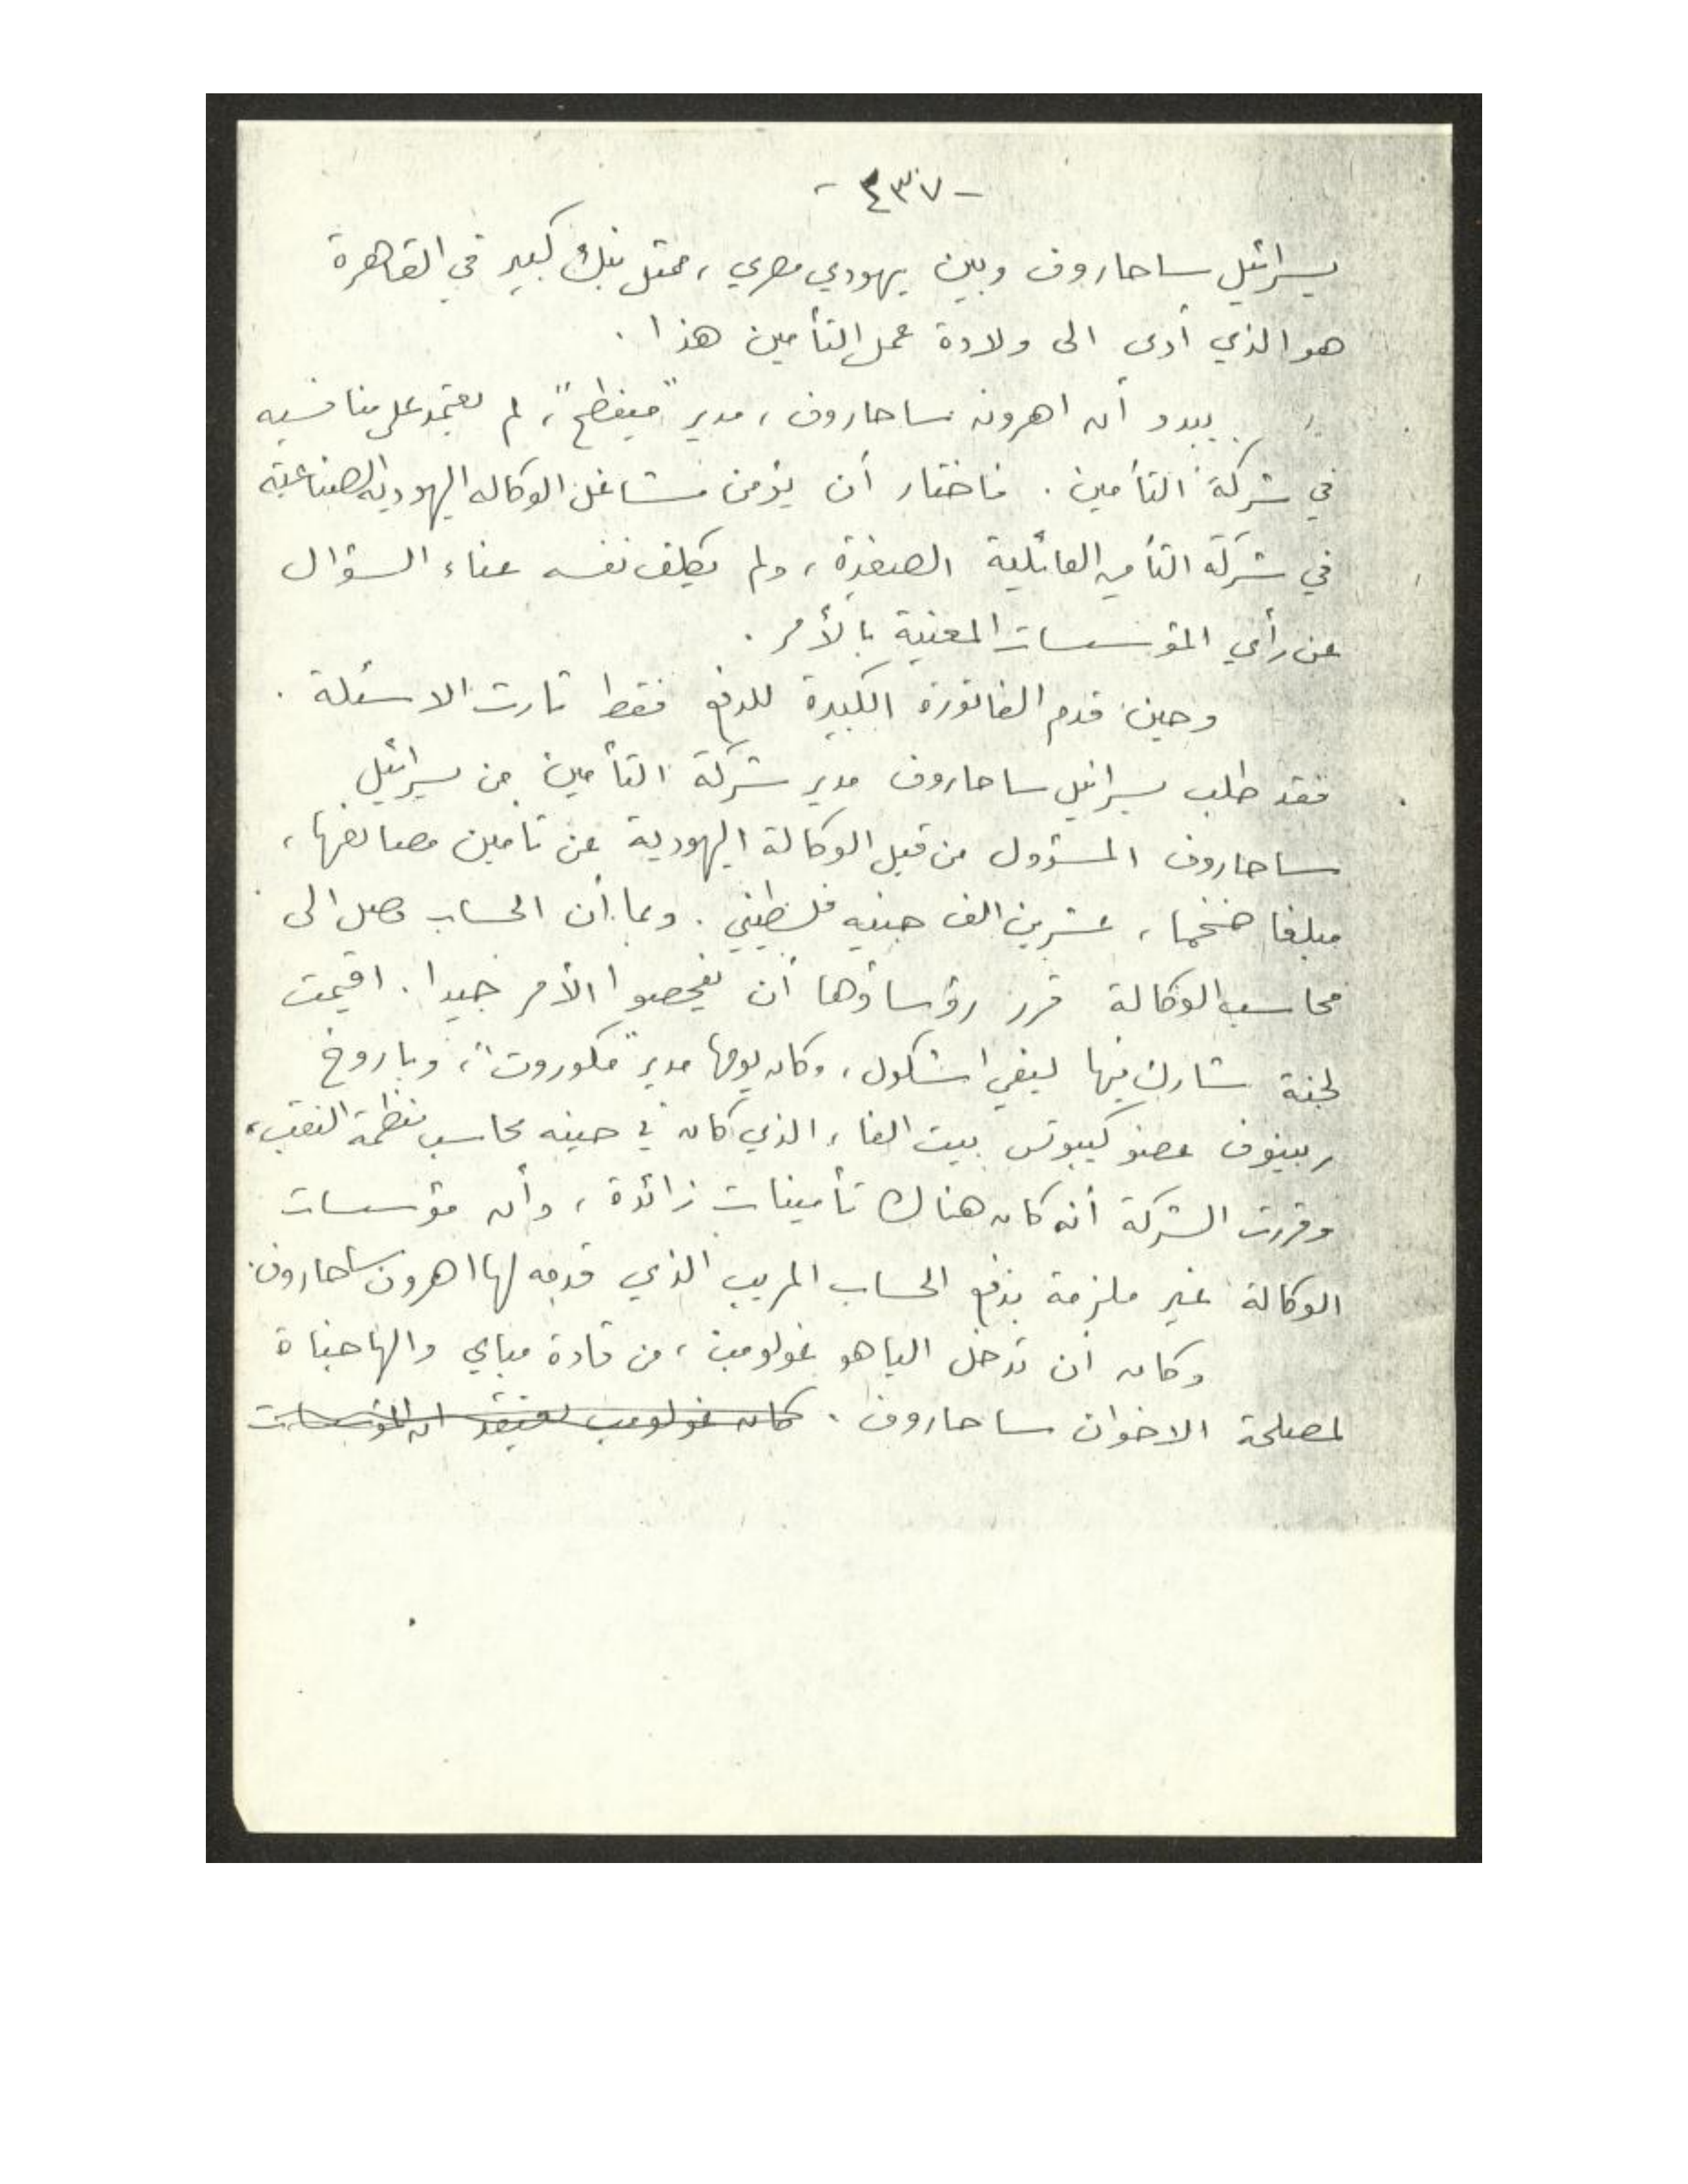 - ٤٣٧ -
يسرائيل ساحاروف وبين يهودي مصري ، ممثل بنك كبير في القاهرة
هو الذي أدى الى ولادة عمل التأمين هذا .
يبدو أن اهرون ساحاروف ، مدير "مينفطح" ، لم يعتمد على منافسيه
في شركة التأمين . فاختار أن يؤمن مشاغل الوكاله اليهوديه الصناعية
في شركة التأمين العائلية الصغيرة ، ولم يكلف نفسه عناء السؤال
عن رأي المؤسسات المعنية بالأمر .
وحين قدم الفاتورة الكبيرة للدفع فقط ثارت الاسئلة .
فقد طلب يسرائيل ساحاروف مدير شركة التأمين من يسرائيل
ساحاروف المسؤول من قبل الوكالة اليهودية عن تامين مصانعها ،
مبلغا ضخما ، عشرين الف جنيه فلسطيني . وبما أن الحساب وصل الى
محاسب الوكالة قرر رؤساؤها أن يفحصوا الأمر جيدا . اقيمت
لجنة شارك فيها ليفي اشكول ، وكان يومها مدير "مكوروت" ، وباروخ
ربينوف عضو كيبوتس بيت الفا ، الذي كان في حينه محاسب منظمة النقب ،
وقررت الشركة أنه كان هناك تأمينات زائدة ، وأن مؤسسات
الوكالة غير ملزمة بدفع الحساب المريب الذي قدمه لها اهرون ساحاروف .
وكان أن تدخل الياهو غولومب ، من قادة مباي والهاجناة
لمصلحة الاخوان ساحاروف . كان غولومب يعتقد ان المؤسسات